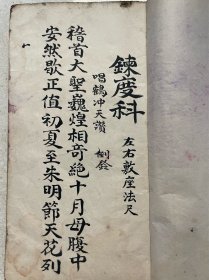 鍊度科
左右敕座法尺
唱鶴冲天讚
稽首大聖巍煌相奇絶十月母腹中
安然歇正值初夏至朱明節天花列